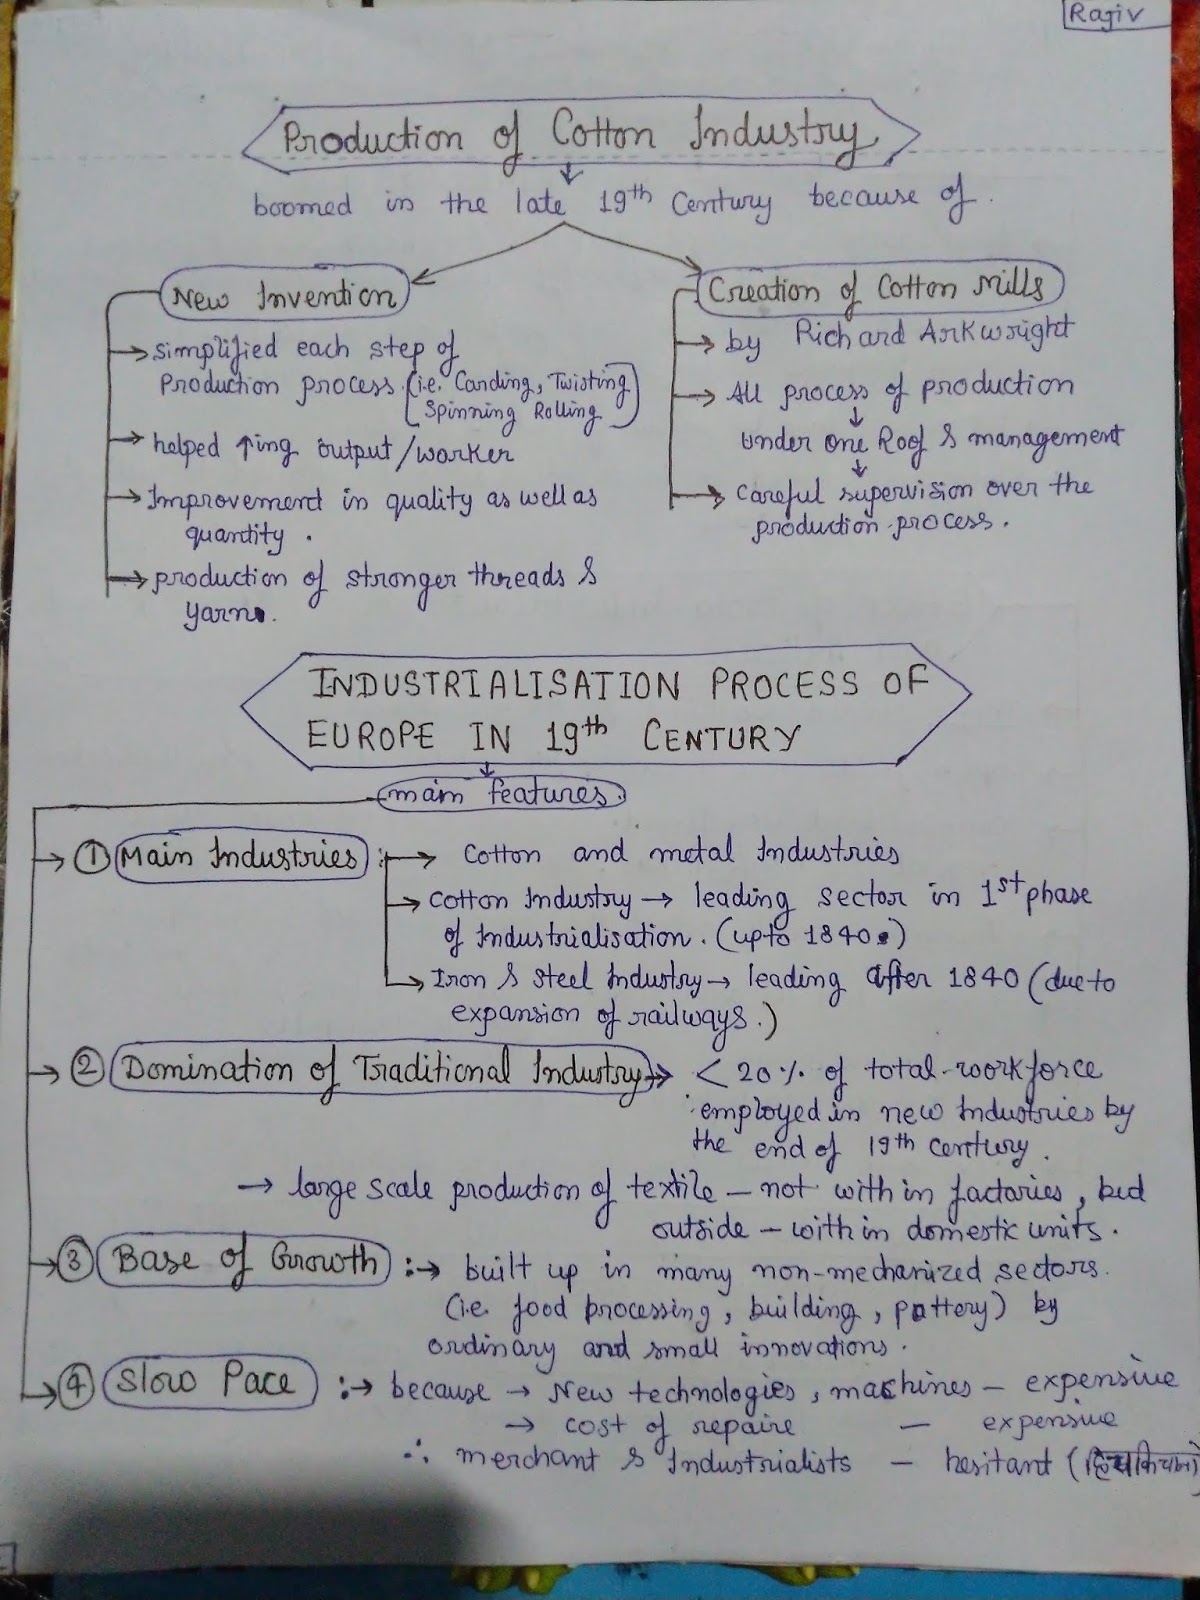 Rajiv
Production of Cotton Industry
↓
boomed in the late 19th Century because of.
New Invention
→ simplified each step of
Production process. (i.e. Carding, Twisting
Spinning Rolling)
→ helped ↑ing output/worker
→ Improvement in quality as well as
quantity.
→ production of stronger threads &
yarn.
Creation of Cotton Mills
→ by Richard Arkwright
→ All process of production
↓
under one Roof & management
↓
→ careful supervision over the
production process.
INDUSTRIALISATION PROCESS OF
EUROPE IN 19th CENTURY
↓
main features.
→ ① Main Industries : → Cotton and metal Industries
→ Cotton Industry → leading sector in 1st phase
of Industrialisation. (upto 1840.)
→ Iron & Steel Industry → leading after 1840 (due to
expansion of railways.)
→ ② Domination of Traditional Industry → < 20% of total workforce
employed in new Industries by
the end of 19th century.
→ large scale production of textile – not with in factories, bud
outside – with in domestic units.
→ ③ Base of Growth :→ built up in many non-mechanized sectors.
(i.e. food processing, building, pottery) by
ordinary and small innovations.
→ ④ Slow Pace :→ because → New technologies, machines – expensive
→ cost of repaire – expensive
∴ merchant & Industrialists – hesitant (